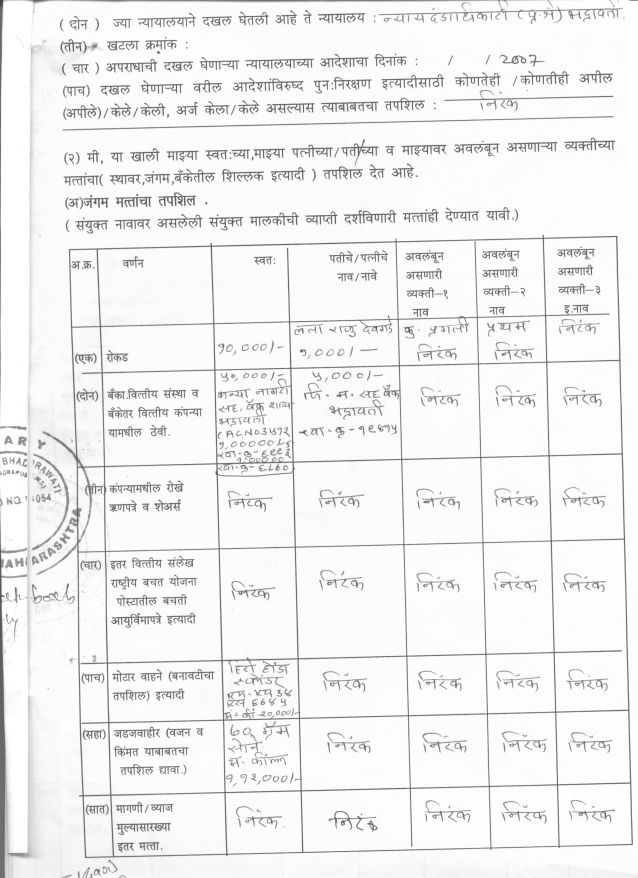 ( दोन ) ज्या न्यायालयाने दखल घेतली आहे ते न्यायालय : न्यायदंडाधिकारी (प्र.श्रे) भद्रावती.
(तीन) खटला क्रमांक :
( चार ) अपराधाची दखल घेणाऱ्या न्यायालयाच्या आदेशाचा दिनांक : / / 2007
(पाच) दखल घेणाऱ्या वरील आदेशांविरुध्द पुन:निरक्षण इत्यादीसाठी कोणतेही /कोणतीही अपील
(अपीले)/केले/केली, अर्ज केला/केले असल्यास त्याबाबतचा तपशिल : निरंक
(२) मी, या खाली माझ्या स्वत:च्या,माझ्या पत्नीच्या/पतीच्या व माझ्यावर अवलंबून असणाऱ्या व्यक्तीच्या
मत्तांचा( स्थावर,जंगम,बँकेतील शिल्लक इत्यादी ) तपशिल देत आहे.
(अ)जंगम मत्तांचा तपशिल .
( संयुक्त नावावर असलेली संयुक्त मालकीची व्याप्ती दर्शविणारी मत्तांही देण्यात यावी.)
अ.क्र. वर्णन स्वत: पतीचे/पत्नीचे अवलंबून अवलंबून अवलंबून
नाव/नावे असणारी असणारी असणारी
व्यक्ती-१ व्यक्ती-२ व्यक्ती-३
नाव नाव इ.नाव
लता राजु कु. प्रगती प्रथम निरंक
(एक) रोकड १०,०००/- १,०००/- निरंक निरंक
(दोन) बँका.वित्तीय संस्था व ५०,०००/- ५,०००/- निरंक निरंक निरंक
बँकेतर वित्तीय कंपन्या नागरी जि. म. सह बँक
यामधील ठेवी. सह. बँक शाखा भद्रावती
भद्रावती खा. क्र-
(तीन) कंपन्यामधील रोखे निरंक निरंक निरंक निरंक निरंक
ऋणपत्रे व शेअर्स
(चार) इतर वित्तीय संलेख निरंक निरंक निरंक निरंक निरंक
राष्ट्रीय बचत योजना
पोस्टातील बचती
आयुर्विमापत्रे इत्यादी
(पाच) मोटार वाहने (बनावटीचा हिरो होंडा निरंक निरंक निरंक निरंक
तपशिल) इत्यादी स्प्लेंडर
(सहा) जडजवाहीर (वजन व ६० ग्रॅम निरंक निरंक निरंक निरंक
किंमत याबाबतचा सोने
तपशिल द्यावा.) १,१२,०००/-
(सात) मागणी/व्याज निरंक. निरंक निरंक निरंक निरंक
मुल्यासारख्या
इतर मत्ता.
MAHARASHTRA